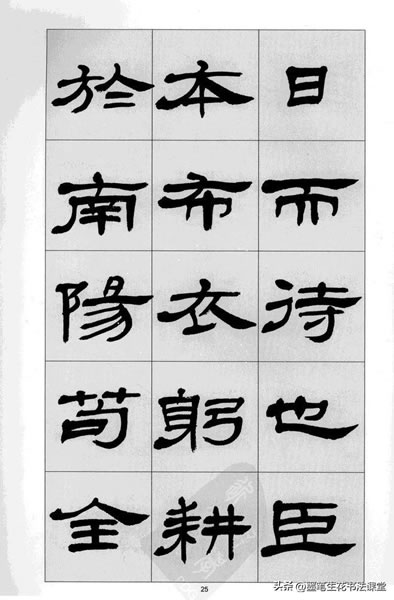 日而待也臣
本布衣躬耕
於南陽苟全
25
头条@墨笔生花书法课堂